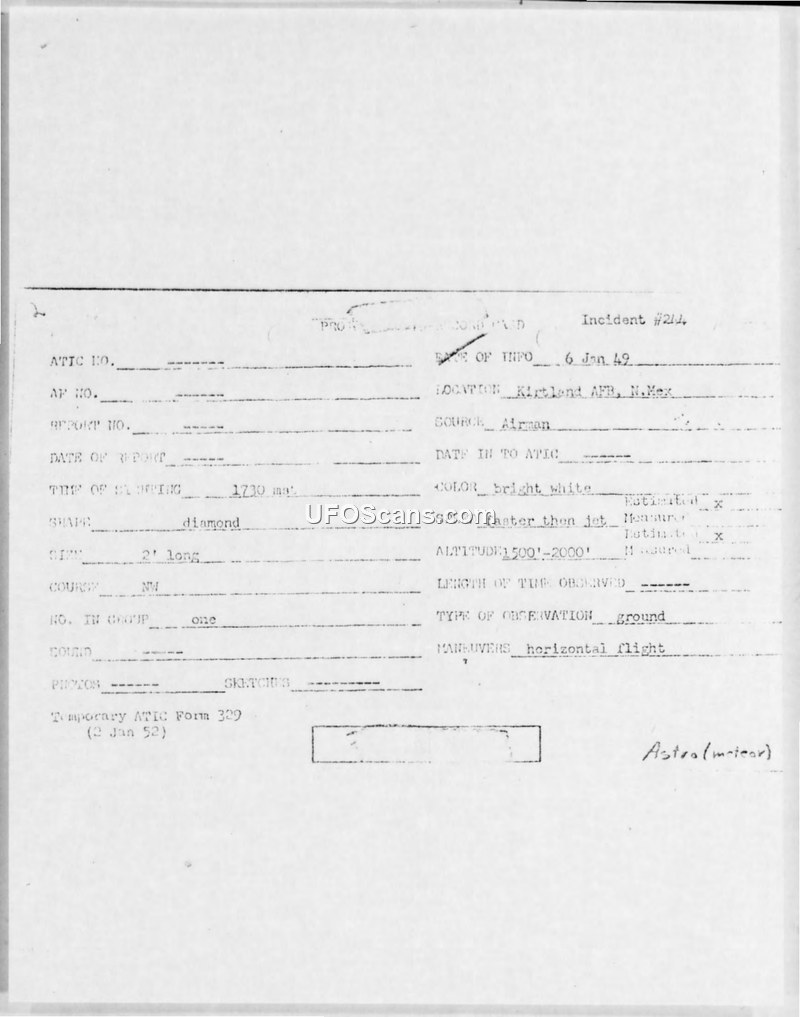 Incident #244
ATIC NO. -------
DATE OF INFO 6 Jan 49
AF NO. ------
LOCATION Kirtland AFB, N.Mex
REPORT NO. -----
SOURCE Airman
DATE OF REPORT -----
DATE IN TO ATIC ------
TIME OF SIGHTING 1730 mst
COLOR bright white
Estimated x
SHAPE diamond
faster then jet Measured
UFOScans.com
Estimated x
SIZE 2' long
ALTITUDE 1500'-2000' Measured
COURSE NW
LENGTH OF TIME OBSERVED ------
NO. IN GROUP one
TYPE OF OBSERVATION ground
SOUND -----
MANEUVERS horizontal flight
PHOTOS ------ SKETCHES ----------
Temporary ATIC Form 329
(2 Jan 52)
Astro (meteor)